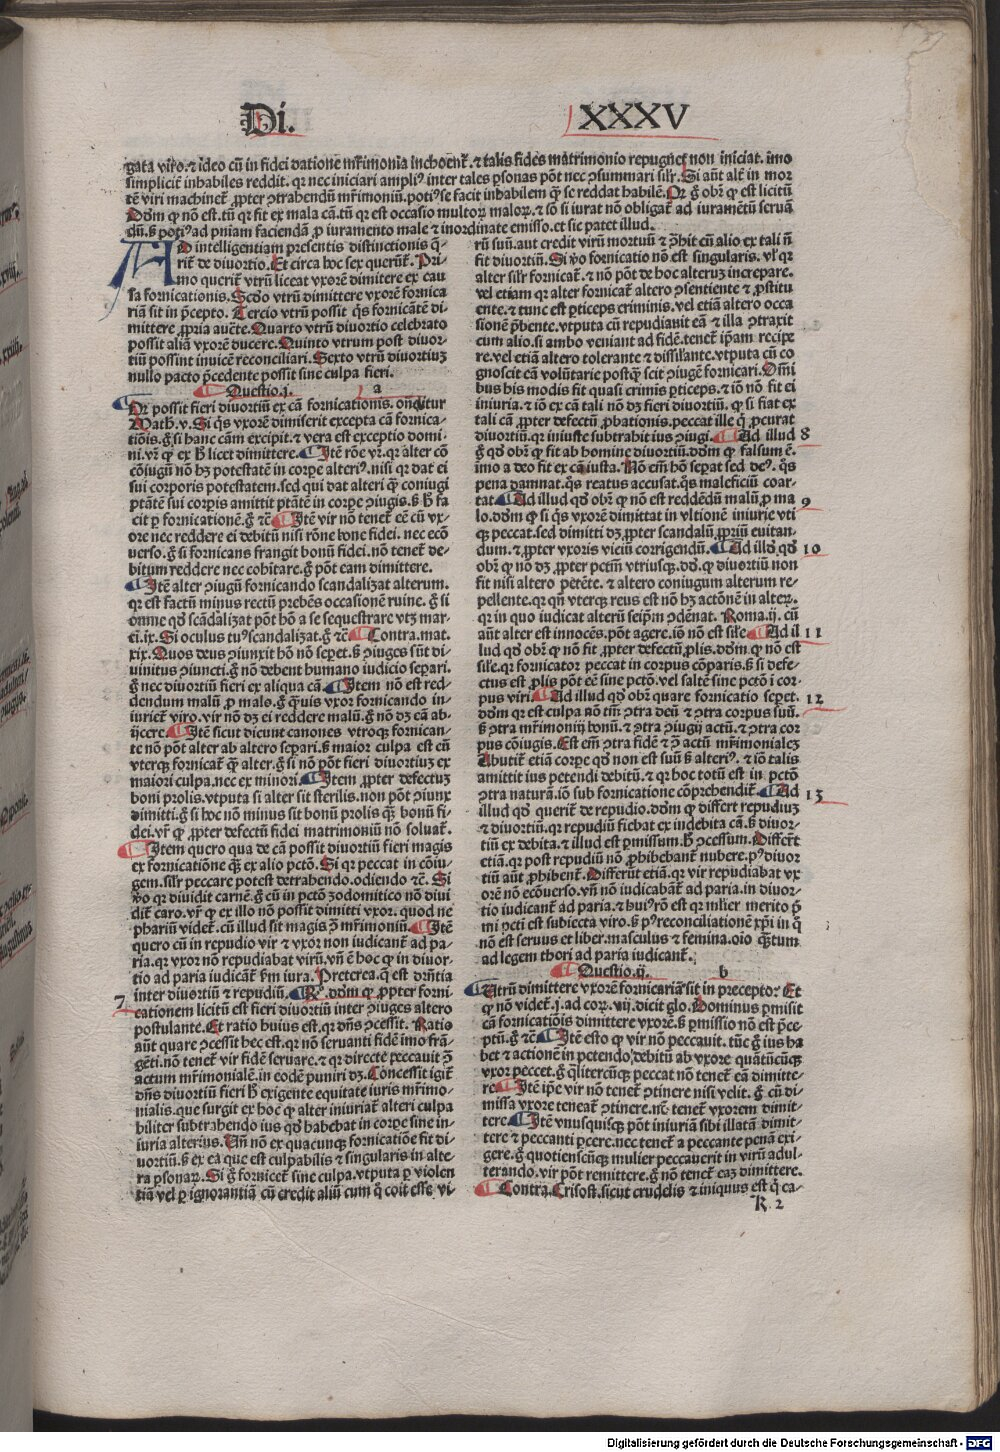 Di. XXXV
gata viro. ⁊ ideo cū in fidei datione mr̄imonia inchoent̄. ⁊ talis fides matrimonio repugnet non iniciat. imo
simplicit̄ inhabiles reddit. qꝛ nec iniciari ampliꝰ inter tales ꝑsonas pōt nec ↄsummari silr̄. Si aūt alt̄ in mor
tē viri machinet̄ ꝓpter ↄtrahendū mr̄imoniū. potiꝰ se facit inhabilem ꝙ̄ se reddat habilē. Pꝛ ḡ obr̄ ꝙ est licitū
Dōm ꝙ nō est. tū qꝛ fit ex mala cā. tū qꝛ est occasio multoꝝ maloꝝ. ⁊ iō si iurat nō obligat̄ ad iuramētū seruā
dū. ß potiꝰ ad pn̄iam faciendā ꝓ iuramento male ⁊ inordinate emisso. et sic patet illud.
AD intelligentiam presentis distinctionis q̄-
rit̄ de diuortio. Et circa hoc sex querunt̄. Pri-
mo querit̄ vtrū liceat vxorē dimitere ex cau
sa fornicationis. Scdo vtrū dimittere vxorē fornica
riā sit in p̄cepto. Tercio vtrū possit q̄s fornicātē di-
mittere ꝓpria aucte. Quarto vtrū diuortio celebrato
possit aliā vxorē ducere. Quinto vtrum post diuor-
tiū possint inuicē reconciliari. Sexto vtrū diuortiuꝫ
nullo pacto p̄cedente possit sine culpa fieri.
Questio.j. a
Qꝛ possit fieri diuortiū ex cā fornicationis. ondūtur
Math.v. Si q̄s vxorē dimiserit excepta cā fornica-
tiōis. ḡ si hanc cām excipit. ⁊ vera est exceptio domi-
ni. vr̄ ꝙ ex h̄ licet dimittere. Itē rōe vr̄. qꝛ alter cō
cōiugū nō hꝫ potestatē in corpe alteriꝰ. nisi qꝛ dat ei
sui corporis potestatem. sed qui dat alteri q̄ coniugi
ptātē sui corpis amittit ptātē in corpe ↄiugis. ß h̄ fa
cit p fornicationē. ḡ ⁊c̄ Itē vir nō tenet̄ eē cū vx-
ore nec reddere ei debitū nisi rōne bone fidei. nec ecō
uerso. ḡ si fornicans frangit bonū fidei. nō tenet̄ de-
bitum reddere nec cohitare. ḡ pōt eam dimittere.
Itē alter ↄiugū fornicando scandalizat alterum.
qꝛ est factū minus rectū prebēs occasionē ruine. ḡ si
omne qd̄ scādalizat pōt hō a se sequestrare vtꝫ mar-
ci.ix. Si oculus tuꝰ scandalizat. ḡ ⁊c̄ Contra. mat.
xix. Quos deus ↄiunxit hō nō sepet̄. ß ↄiuges sūt di-
uinitus ↄiuncti. ḡ nō debent humano iudicio separi.
ḡ nec diuortiū fieri ex aliqua cā Item nō est red-
dendum malū ꝓ malo. ḡ q̄uis vxor fornicando in-
iuriet̄ viro. vir nō dꝫ ei reddere malū. ḡ nō dꝫ cā ab-
ijcere. Itē sicut dicunt canones vtroqꝫ fornican-
te nō pōt alter ab altero separi. ß maior culpa est cū
vterqꝫ fornicat̄ ꝙ̄ alter. ḡ si nō pōt fieri diuortiuꝫ ex
maiori culpa. nec ex minori. Item ꝓpter defectuꝫ
boni prolis. vtputa si alter sit sterilis. non pōt ↄiunx
dimitti. ḡ si hoc nō minus sit bonū prolis ꝙ̄ bonū fi-
dei. vr̄ ꝙ ꝓpter defectū fidei matrimoniū nō soluat̄.
Item quero qua de cā possit diuortiū fieri magis
ex fornicatiōne ꝙ̄ ex alio pctō. Si qꝛ peccat in cōiu-
gem. silr̄ peccare potest detrahendo. odiendo ⁊c̄. Si
ꝟo qꝛ diuidit carnē. ḡ cū in pctō ꝫodomitico nō diui
dit̄ caro. vr̄ ꝙ ex illo nō possit dimitti vxor. quod ne
phariū videt̄. cū illud sit magis ↄ̄ mr̄imoniū. Itē
quero cū in repudio vir ⁊ vxor non iudicant̄ ad pa-
ria. qꝛ vxor nō repudiabat virū. vn̄ ē hoc ꝙ in diuor-
tio ad paria iudicāt̄ ẜm iura. Preterea. q̄ est dr̄ntia
inter diuortiū ⁊ repudiū. R̄. dōm ꝙ ꝓpter forni
cationem licitū est fieri diuortiū inter ↄiuges altero
postulante. Et ratio huius est. qꝛ dn̄s ↄcessit. Ratio
aūt quare ↄcessit hec est. qꝛ nō seruanti fidē imo frā-
gēti. nō tenet̄ vir fidē seruare. ⁊ qꝛ directe peccauit ↄ̄
actum mr̄imonialē. in eodē puniri dꝫ. Concessit igit̄
dn̄s diuortiū fieri h̄ exigente equitate iuris mr̄imo-
nialis. que surgit ex hoc ꝙ alter iniuriat̄ alteri culpa
biliter subtrahendo ius qd̄ habebat in corpe sine in-
iuria alterius. Vn̄ nō ex quacunqꝫ fornicatiōe fit di-
uortiū. ß ex ea que est culpabilis ⁊ singularis in alte-
ra ꝑsonaꝝ. Si ḡ fornicet̄ sine culpa. vtputa ꝑ violen
tiā vel ꝑ ignorantiā cū credit aliū cum q̄ coit esse vi-
rū suū. aut credit virū mortuū ⁊ ↄ̄hit cū alio ex tali n̄
fit diuortiū. Si ꝟo fornicatio nō est singularis. vl' qꝛ
alter silr̄ fornicat̄. ⁊ nō pōt de hoc alteruꝫ increpare.
vel etiam qꝛ alter fornicat̄ altero ↄsentiente ⁊ ꝓstitu
ente. ⁊ tunc est ꝑticeps criminis. vel etiā altero occa
sionē p̄bente. vtputa cū repudianit eā ⁊ illa ↄtraxit
cum alio. si ambo veniant ad fidē. tenet̄ ip̄am recipe
re. vel etiā altero tolerante ⁊ dissil'ante. vtputa cū co
gnoscit eā volūtarie postꝙ̄ scit ↄiugē fornicari. Om̄i
bus his modis fit quasi crimis ꝑticeps. ⁊ iō nō fit ei
iniuria. ⁊ iō ex cā tali nō dꝫ fieri diuortiū. ꝙ si fiat ex
tali cā ꝓpter defectū ꝓbationis. peccat ille q̄ ꝓcurat
diuortiū. qꝛ iniuste subtrahit ius ↄiugi. Ad illud 8
ḡ qd̄ obr̄ ꝙ fit ab homine diuortiū. dōm ꝙ falsum ē.
imo a deo fit ex cā iusta. Nō em̄ hō sepat sed deꝰ. q̄s
pena damnat. q̄s reatus accusat. q̄s maleficiū coar-
tat. Ad illud qd̄ obr̄ ꝙ nō est reddēdū malū ꝓ ma 9
lo. dōm ꝙ si q̄s vxorē dimittat in vltionē iniurie vti
qꝫ peccat. sed dimitti dꝫ ꝓpter scandalū ꝓpriū euitan-
dum. ⁊ ꝓpter vxoris viciū corrigendū. Ad illd qd̄ 10
obr̄ ꝙ nō dꝫ ꝓpter pctm̄ vtriusqꝫ. dō. ꝙ diuortiū non
fit nisi altero petēte. ⁊ altero coniugum alterum re-
pellente. qꝛ qn̄ vterqꝫ reus est nō hꝫ actōnē in alteꝝ.
qꝛ in quo iudicat alterū seip̄m ↄdēnat. Roma.ij. cū
aūt alter est innocēs. pōt agere. iō nō est sil'e Ad il 11
lud qd̄ obr̄ ꝙ nō fit ꝓpter defectū ꝓlis. dōm ꝙ nō est
sil'e. qꝛ fornicator peccat in corpus cōparis. ß si defe-
ctus est ꝓlis pōt eē sine pctō. vel saltē sine pctō ī cor-
pus viri. Ad illud qd̄ obr̄ quare fornicatio sepet. 12
dōm qꝛ est culpa nō tm̄ ↄtra deū ⁊ ↄtra corpus suū.
ß ↄtra mr̄imonij bonū. ⁊ ↄtra ↄiugij actū. ⁊ ↄtra cor
pus cōiugis. Est em̄ ↄtra fidē ⁊ ↄ̄ actū mr̄imonialeꝫ
Abutit̄ etiā corpe qd̄ non est suū ß alteriꝰ. ⁊ iō talis
amittit ius petendi debitū. ⁊ qꝛ hoc totū est in pctō
ↄtra naturā. iō sub fornicatione cōprehendit̄. Ad 13
illud qd̄ querit̄ de repudio. dōm ꝙ differt repudiuꝫ
⁊ diuortiū. qꝛ repudiū fiebat ex indebita cā. ß diuor-
tiū ex debita. ⁊ illud est ꝑmissum. h̄ ↄcessum. Differt̄
etiā. qꝛ post repudiū nō ꝓhibebant̄ nubere. pꝰ diuor
tiū aūt ꝓhibent̄. Differūt etiā. qꝛ vir repudiabat vx
orē nō ecōuerso. vn̄ nō iudicabāt̄ ad paria. in diuor-
tio iudicant̄ ad paria. ⁊ huiꝰ rō est qꝛ mulier merito p̄
mi pcti est subiecta viro. ß pꝰ reconciliationē xp̄i in q̄
nō est seruus et liber. masculus ⁊ femina. oīo ꝙ̄tum
ad legem thori ad paria iudicant̄.
Questio.ij. b
Vtrū dimittere vxorē fornicariā sit in precepto? Et
ꝙ nō videt̄. j. ad coꝝ. vij. dicit glo. Dominus ꝑmisit
cā fornicatiōis dimittere vxorē. ß ꝑmissio nō est p̄ce-
ptū. ḡ ⁊c̄ Itē esto ꝙ vir nō peccauit. tūc ḡ ius ha
bet ⁊ actionē in petendo debitū ab vxore quātūcūqꝫ
vxor peccet. ḡ q̄litercūqꝫ peccat nō tenet̄ eā dimitte-
re Itē ip̄e vir nō tenet̄ ↄtinere nisi velit. ḡ cū di-
missa vxore teneat̄ ↄtinere. nō tenet̄ vxorem dimit-
tere. Itē vnusquisqꝫ pōt iniuriā sibi illatā dimit-
tere ⁊ peccanti ꝑcere. nec tenet̄ a peccante penā exi-
gere. ḡ quotienscūqꝫ mulier peccauerit in virū adul-
terando. vir pōt remittere. ḡ nō tenet̄ eaꝫ dimittere.
Contra. Crisost. sicut crudelis ⁊ iniquus est q̄ ca-
7
K 2
Digitalisierung gefördert durch die Deutsche Forschungsgemeinschaft - DFG